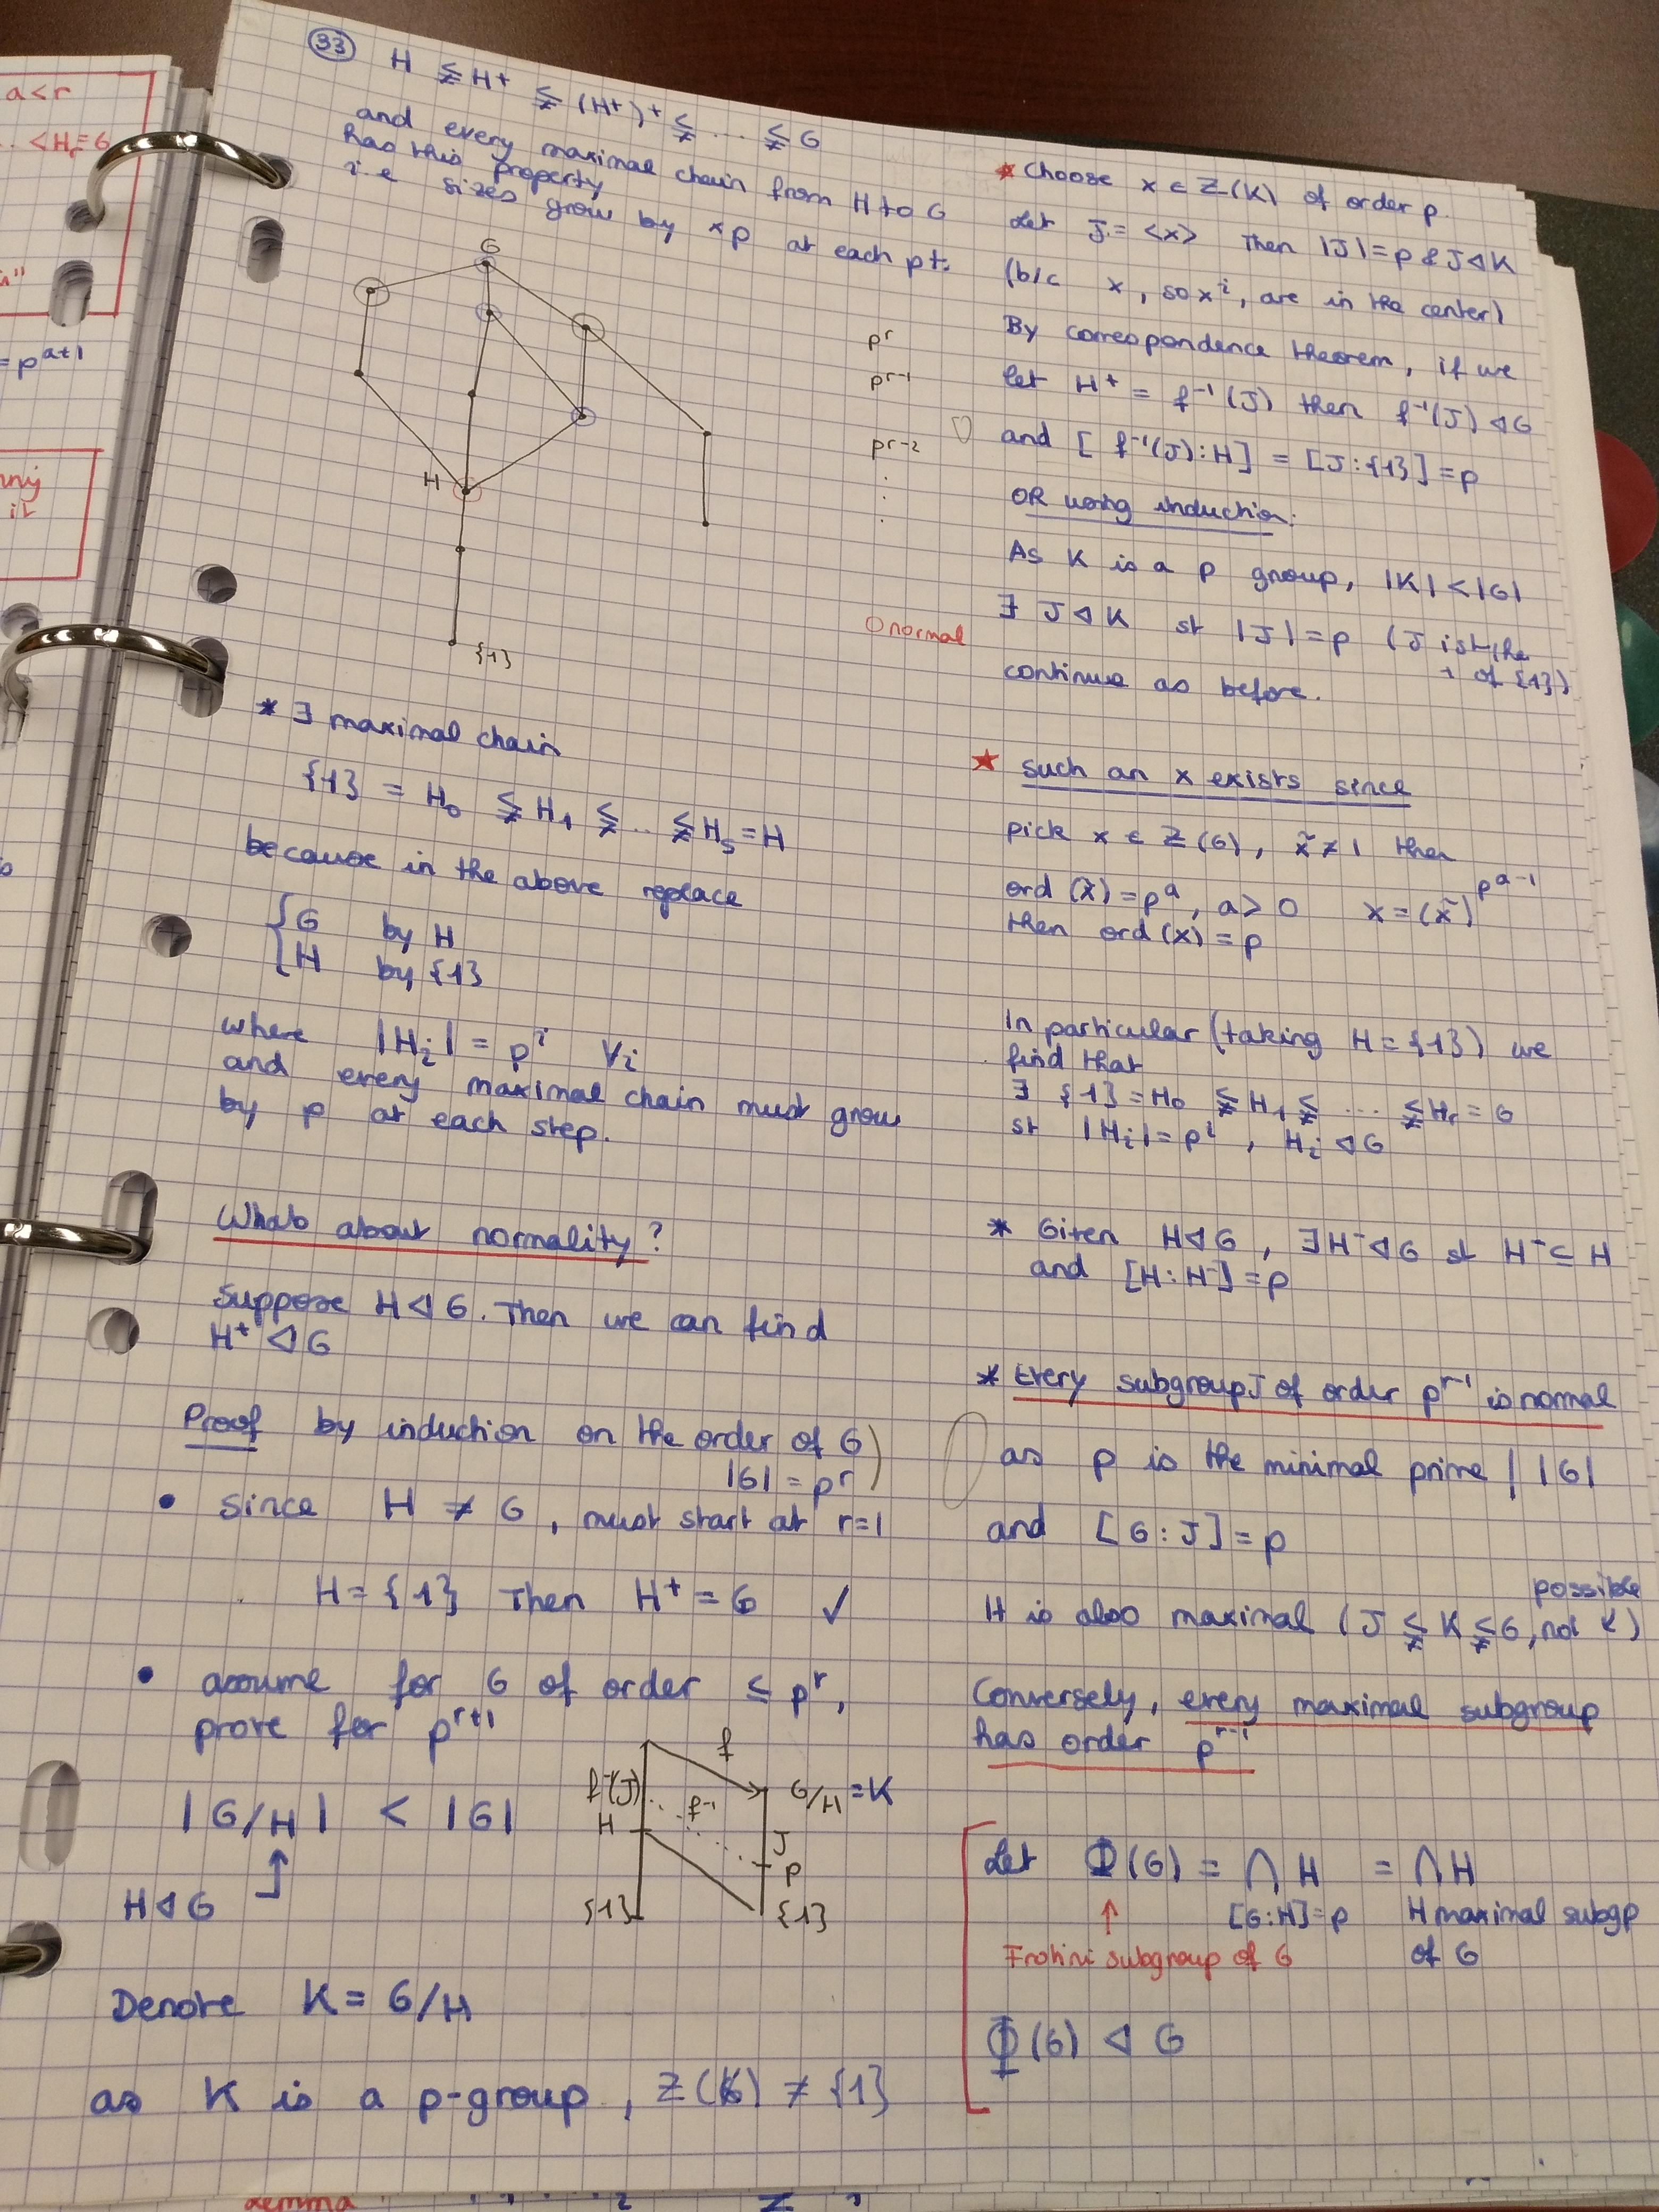 a<r
.. <H_r=G
= p^{a+1}
(33) H ≨ H⁺ ≨ (H⁺)⁺ ≨ ... ≨ G
and every maximal chain from H to G
has this property
i.e sizes grow by ×p at each pt.
G
H
{1}
p^r
p^{r-1}
p^{r-2}
⋮
O normal
* ∃ maximal chain
{1} = H₀ ≨ H₁ ≨ .. ≨ H_s = H
because in the above replace
{ G by H
{ H by {1}
where |H_i| = p^i ∀i
and every maximal chain must grow
by p at each step.
Whats about normality?
Suppose H ◁ G. Then we can find
H⁺ ◁ G
Proof by induction on the order of G)
|G| = p^r
• Since H ≠ G, must start at r=1
H = {1} Then H⁺ = G ✓
• assume for G of order ≤ p^r,
prove for p^{r+1}
|G/H| < |G|
H ◁ G
f
f⁻¹(J)
f⁻¹
G/H = K
H
J
p
{1}
{1}
Denote K = G/H
as K is a p-group, Z(K) ≠ {1}
* Choose x ∈ Z(K) of order p.
Let J = <x> Then |J| = p & J ◁ K
(b/c x, so x^i, are in the center)
By correspondence theorem, if we
let H⁺ = f⁻¹(J) then f⁻¹(J) ◁ G
and [f⁻¹(J):H] = [J:{1}] = p
OR using induction:
As K is a p group, |K| < |G|
∃ J ◁ K st |J| = p (J is the
+ of {1})
continue as before.
★ such an x exists since
pick x ∈ Z(G), x̃ ≠ 1 then
ord(x̃) = p^a, a > 0 x = (x̃)^{p^{a-1}}
then ord(x) = p
In particular (taking H = {1}) we
find that
∃ {1} = H₀ ≨ H₁ ≨ ... ≨ H_r = G
st |H_i| = p^i, H_i ◁ G
* Given H ◁ G, ∃ H⁻ ◁ G st H⁻ ⊆ H
and [H:H⁻] = p
* Every subgroup J of order p^{r-1} is normal
as p is the minimal prime | |G|
and [G:J] = p
possible
H is also maximal (J ≨ K ≨ G, not K)
Conversely, every maximal subgroup
has order p^{r-1}
Let Φ(G) = ∩ H = ∩ H
[G:H]=p H maximal subgp
of G
↑
Fratini subgroup of G
Φ(G) ◁ G
Lemma